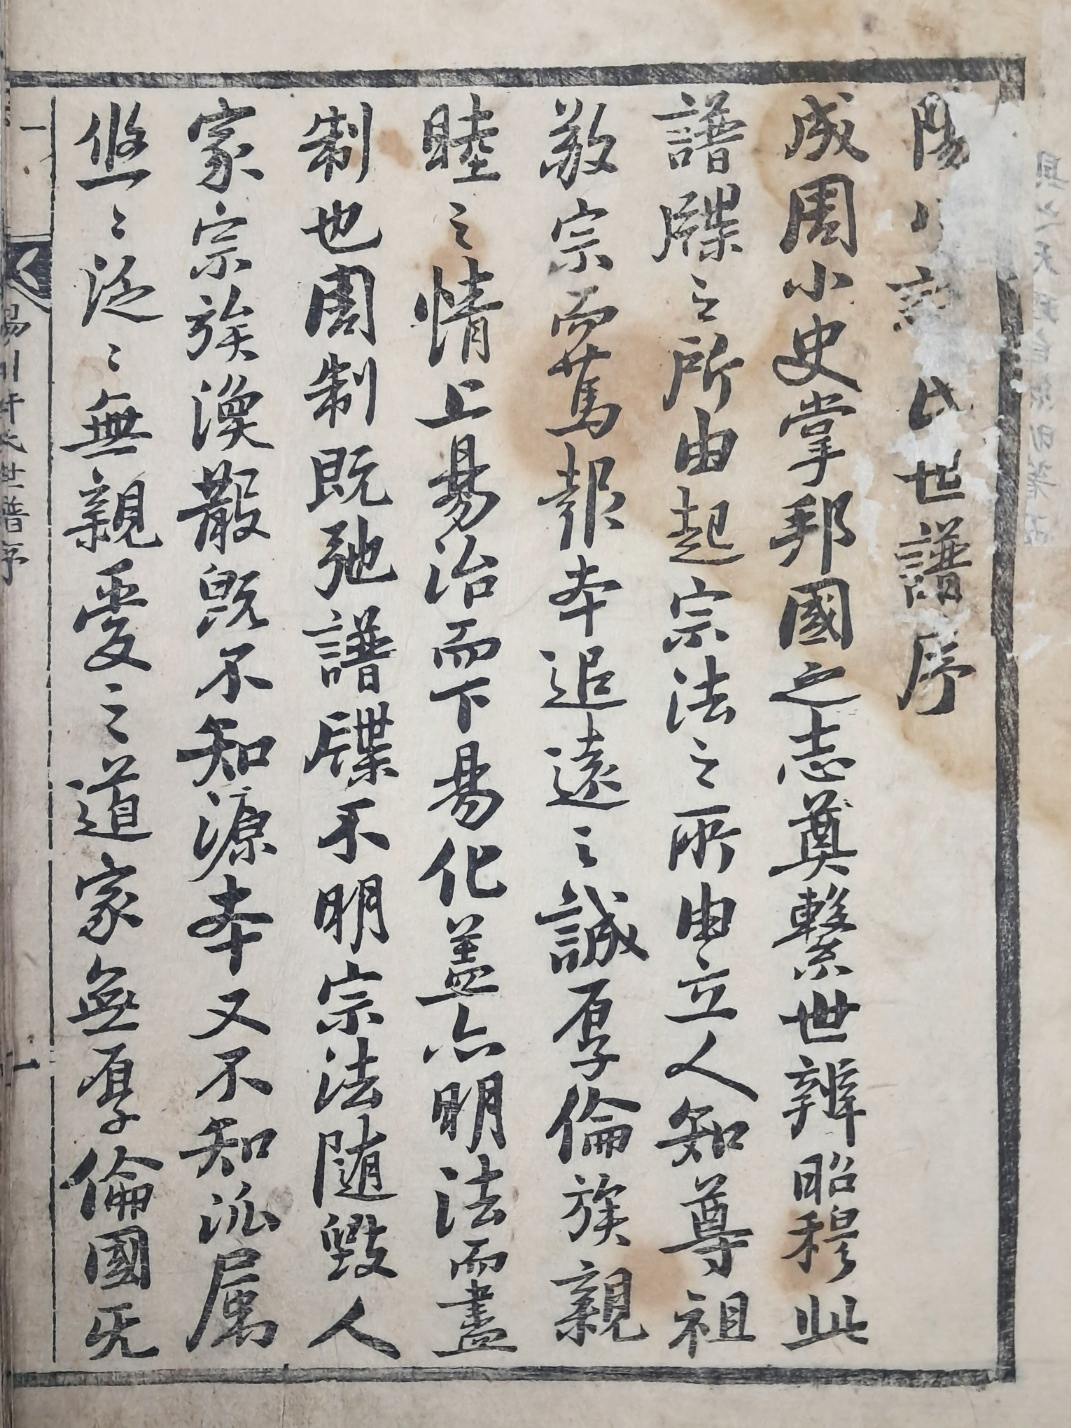 陽川許氏世譜序
成周小史掌邦國之志奠繫世辨昭穆此
譜牒之所由起宗法之所由立人知尊祖
敬宗而篤報本追遠之誠厚倫族親
睦之情上易治而下易化盖亦明法而盡
制也周制既弛譜牒不明宗法随毀人
家宗族渙散旣不知源本又不知派属
悠〻泛〻無親愛之道家無厚倫國旡
陽川許氏世譜序
一